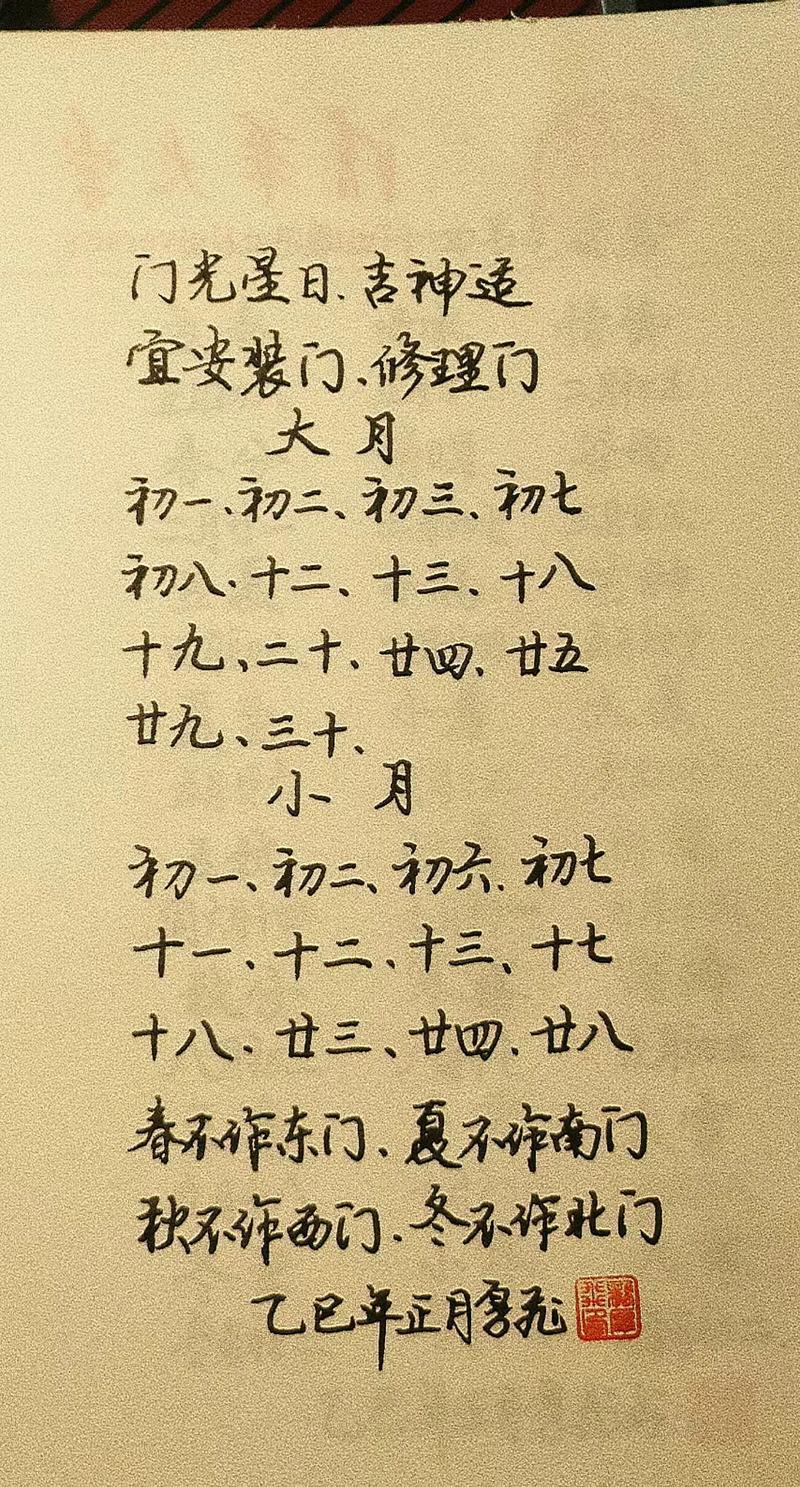 门光星日、吉神适
宜安装门、修理门
大月
初一、初二、初三、初七
初八、十二、十三、十八
十九、二十、廿四、廿五
廿九、三十、
小月
初一、初二、初六、初七
十一、十二、十三、十七
十八、廿三、廿四、廿八
春不作东门、夏不作南门
秋不作西门、冬不作北门
乙巳年正月